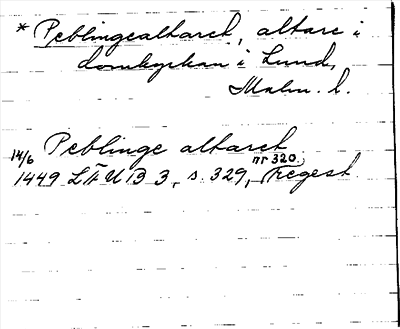 * Peblingealtaret, altare i
domkyrkan i Lund,
Malm. l.
Peblinge altaret
14/6 1449 LÄUB 3, s. 329, nr 320. Regest